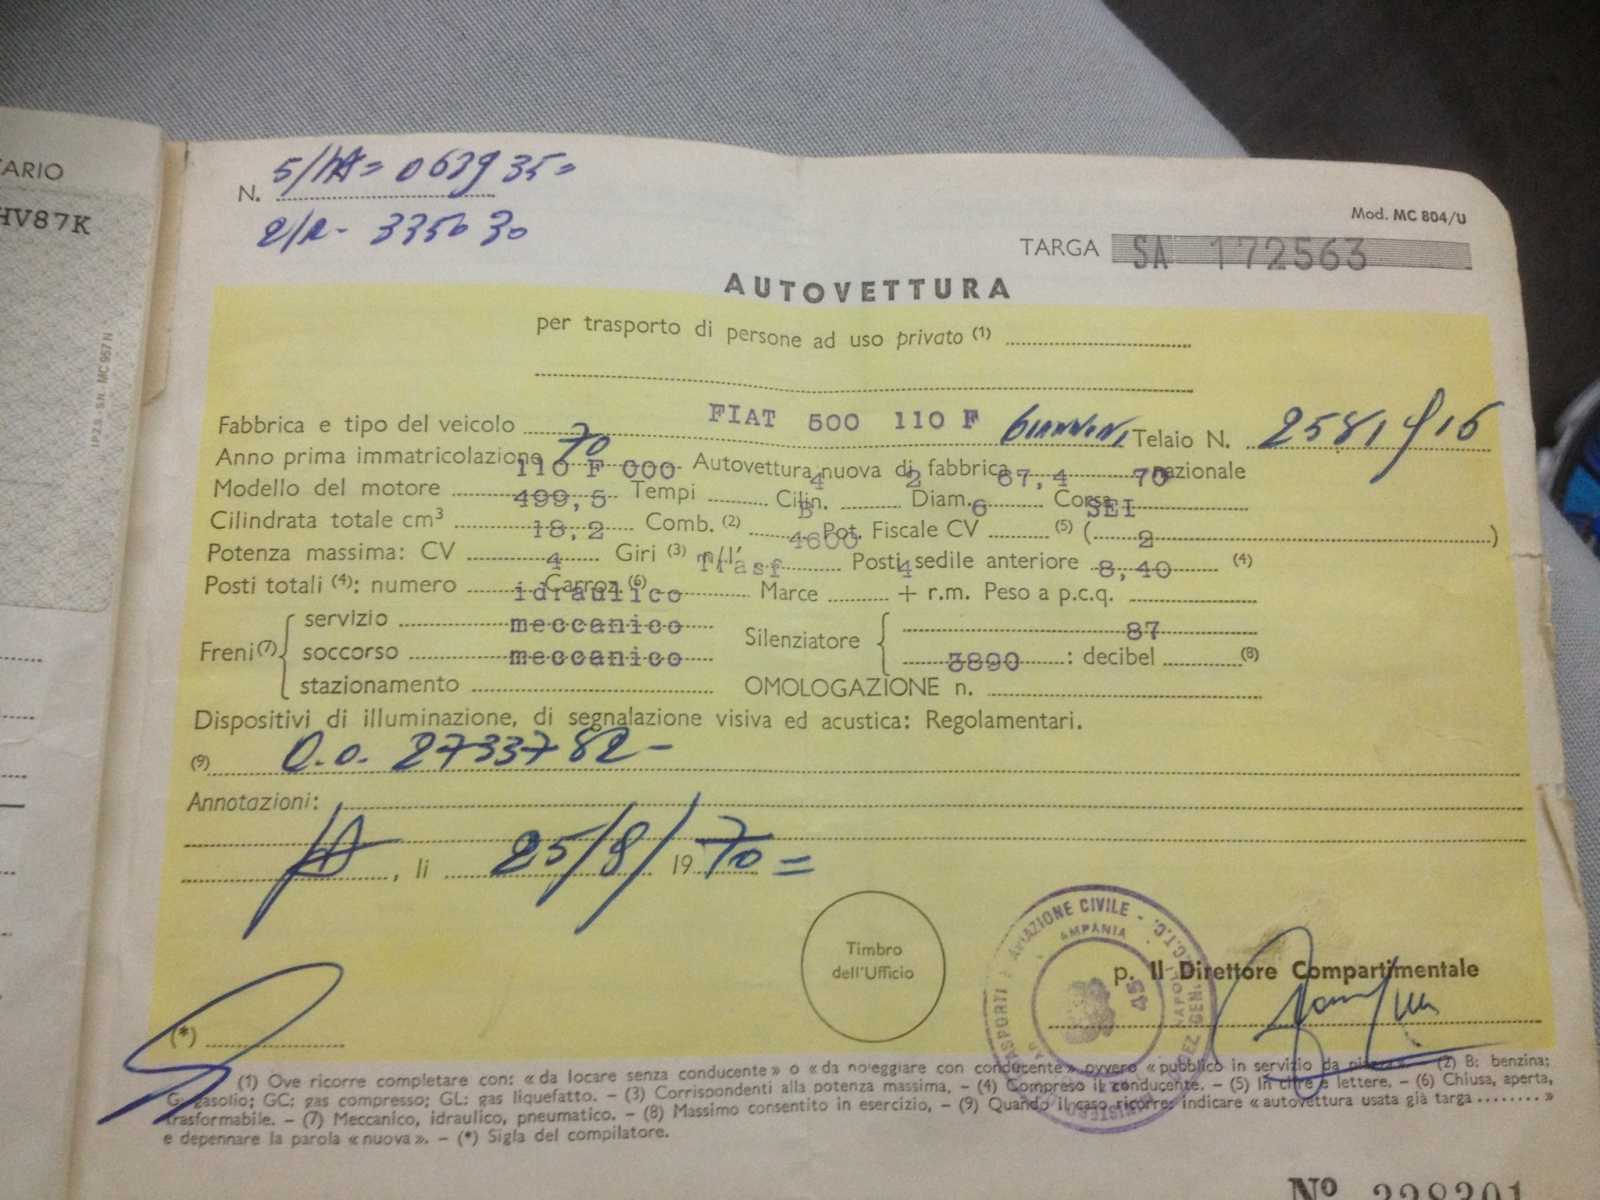 ARIO
HV87K
I.P.Z.S. S.N. MC 957 N
N. 063935=
335030
Mod. MC 804/U
TARGA SA 172563
AUTOVETTURA
per trasporto di persone ad uso privato (1)
Fabbrica e tipo del veicolo FIAT 500 110 F Giannini Telaio N. 2581916
Anno prima immatricolazione 70 Autovettura nuova di fabbrica nazionale
Modello del motore 110 F 000 Tempi 4 Cilin. 2 Diam. 67,4 Corsa 70
Cilindrata totale cm³ 499,5 Comb. (2) B Pot. Fiscale CV 6 (5) (SEI)
Potenza massima: CV 18,2 Giri (3) n/l' 4600 Posti sedile anteriore 2 (4)
Posti totali (4): numero 4 Carroz. (6) Trasf Marce 4 + r.m. Peso a p.c.q. 8,40
Freni (7) servizio idraulico
soccorso meccanico
stazionamento meccanico
Silenziatore : decibel 87 (8)
OMOLOGAZIONE n. 3890
Dispositivi di illuminazione, di segnalazione visiva ed acustica: Regolamentari.
(9) 2733782-
Annotazioni:
, li 25/8/1970=
Timbro
dell'Ufficio
AVIAZIONE CIVILE - AMPANIA 45
p. Il Direttore Compartimentale
(*)
(1) Ove ricorre completare con: « da locare senza conducente » o « da noleggiare con conducente » ovvero « pubblico in servizio da piazza». (2) B: benzina;
G: gasolio; GC: gas compresso; GL: gas liquefatto. – (3) Corrispondenti alla potenza massima. – (4) Compreso il conducente. – (5) In cifre e lettere. – (6) Chiusa, aperta,
trasformabile. – (7) Meccanico, idraulico, pneumatico. – (8) Massimo consentito in esercizio, – (9) Quando il caso ricorre: indicare « autovettura usata già targa ........ »
e depennare la parola « nuova ». – (*) Sigla del compilatore.
Nº 328301